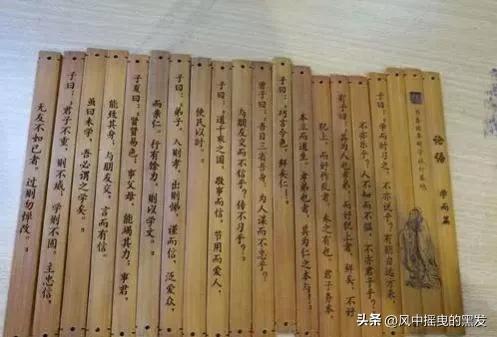 论语 学而篇
子曰：“学而时习之，不亦说乎？有朋自远方来，
不亦乐乎？人不知而不愠，不亦君子乎？”
有子曰：“其为人也孝弟，而好犯上者，鲜矣；不好
犯上，而好作乱者，未之有也。君子务本，
本立而道生。孝弟也者，其为仁之本与！”
子曰：“巧言令色，鲜矣仁！”
曾子曰：“吾日三省吾身，为人谋而不忠乎？
与朋友交而不信乎？传不习乎？”
子曰：“道千乘之国，敬事而信，节用而爱人，
使民以时。”
子曰：“弟子，入则孝，出则悌，谨而信，泛爱众，
而亲仁。行有余力，则以学文。”
子夏曰：“贤贤易色，事父母，能竭其力；事君，
能致其身；与朋友交，言而有信；
虽曰未学，吾必谓之学矣。”
子曰：“君子不重，则不威；学则不固。主忠信，
无友不如己者。过则勿惮改。”
头条 @风中摇曳的黑发